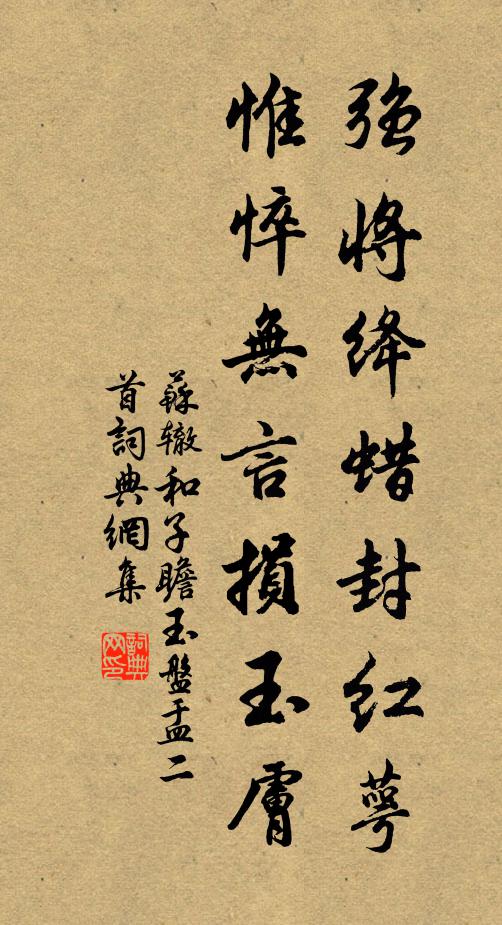 强将绛蜡封红萼
惟悴無言損玉膚
蘇辙和子瞻玉盤盂二
首詞典網集
詞典
网印